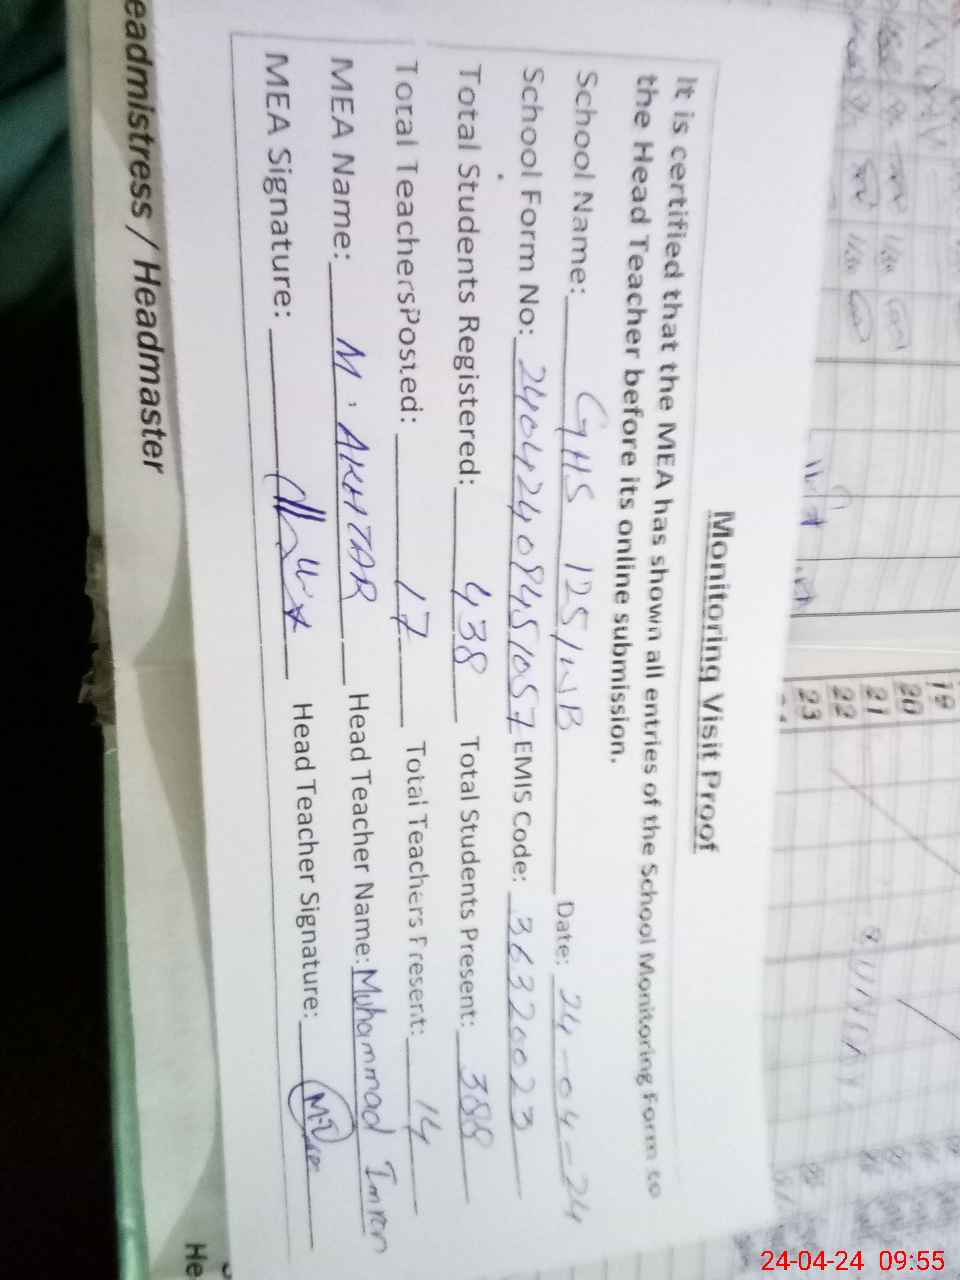 Monitoring Visit Proof
It is certified that the MEA has shown all entries of the School Monitoring Form to
the Head Teacher before its online submission.
School Name: GHS 125/WB Date: 24-04-24
School Form No: 24042408451057 EMIS Code: 36320023
Total Students Registered: 438 Total Students Present: 388
Total Teachers Posted: 17 Total Teachers Present: 14
MEA Name: M. AKHTAR Head Teacher Name: Muhammad Imran
MEA Signature: Head Teacher Signature:
eadmistress / Headmaster
He
19
20
21
22
23
SUNDAY
24-04-24 09:55